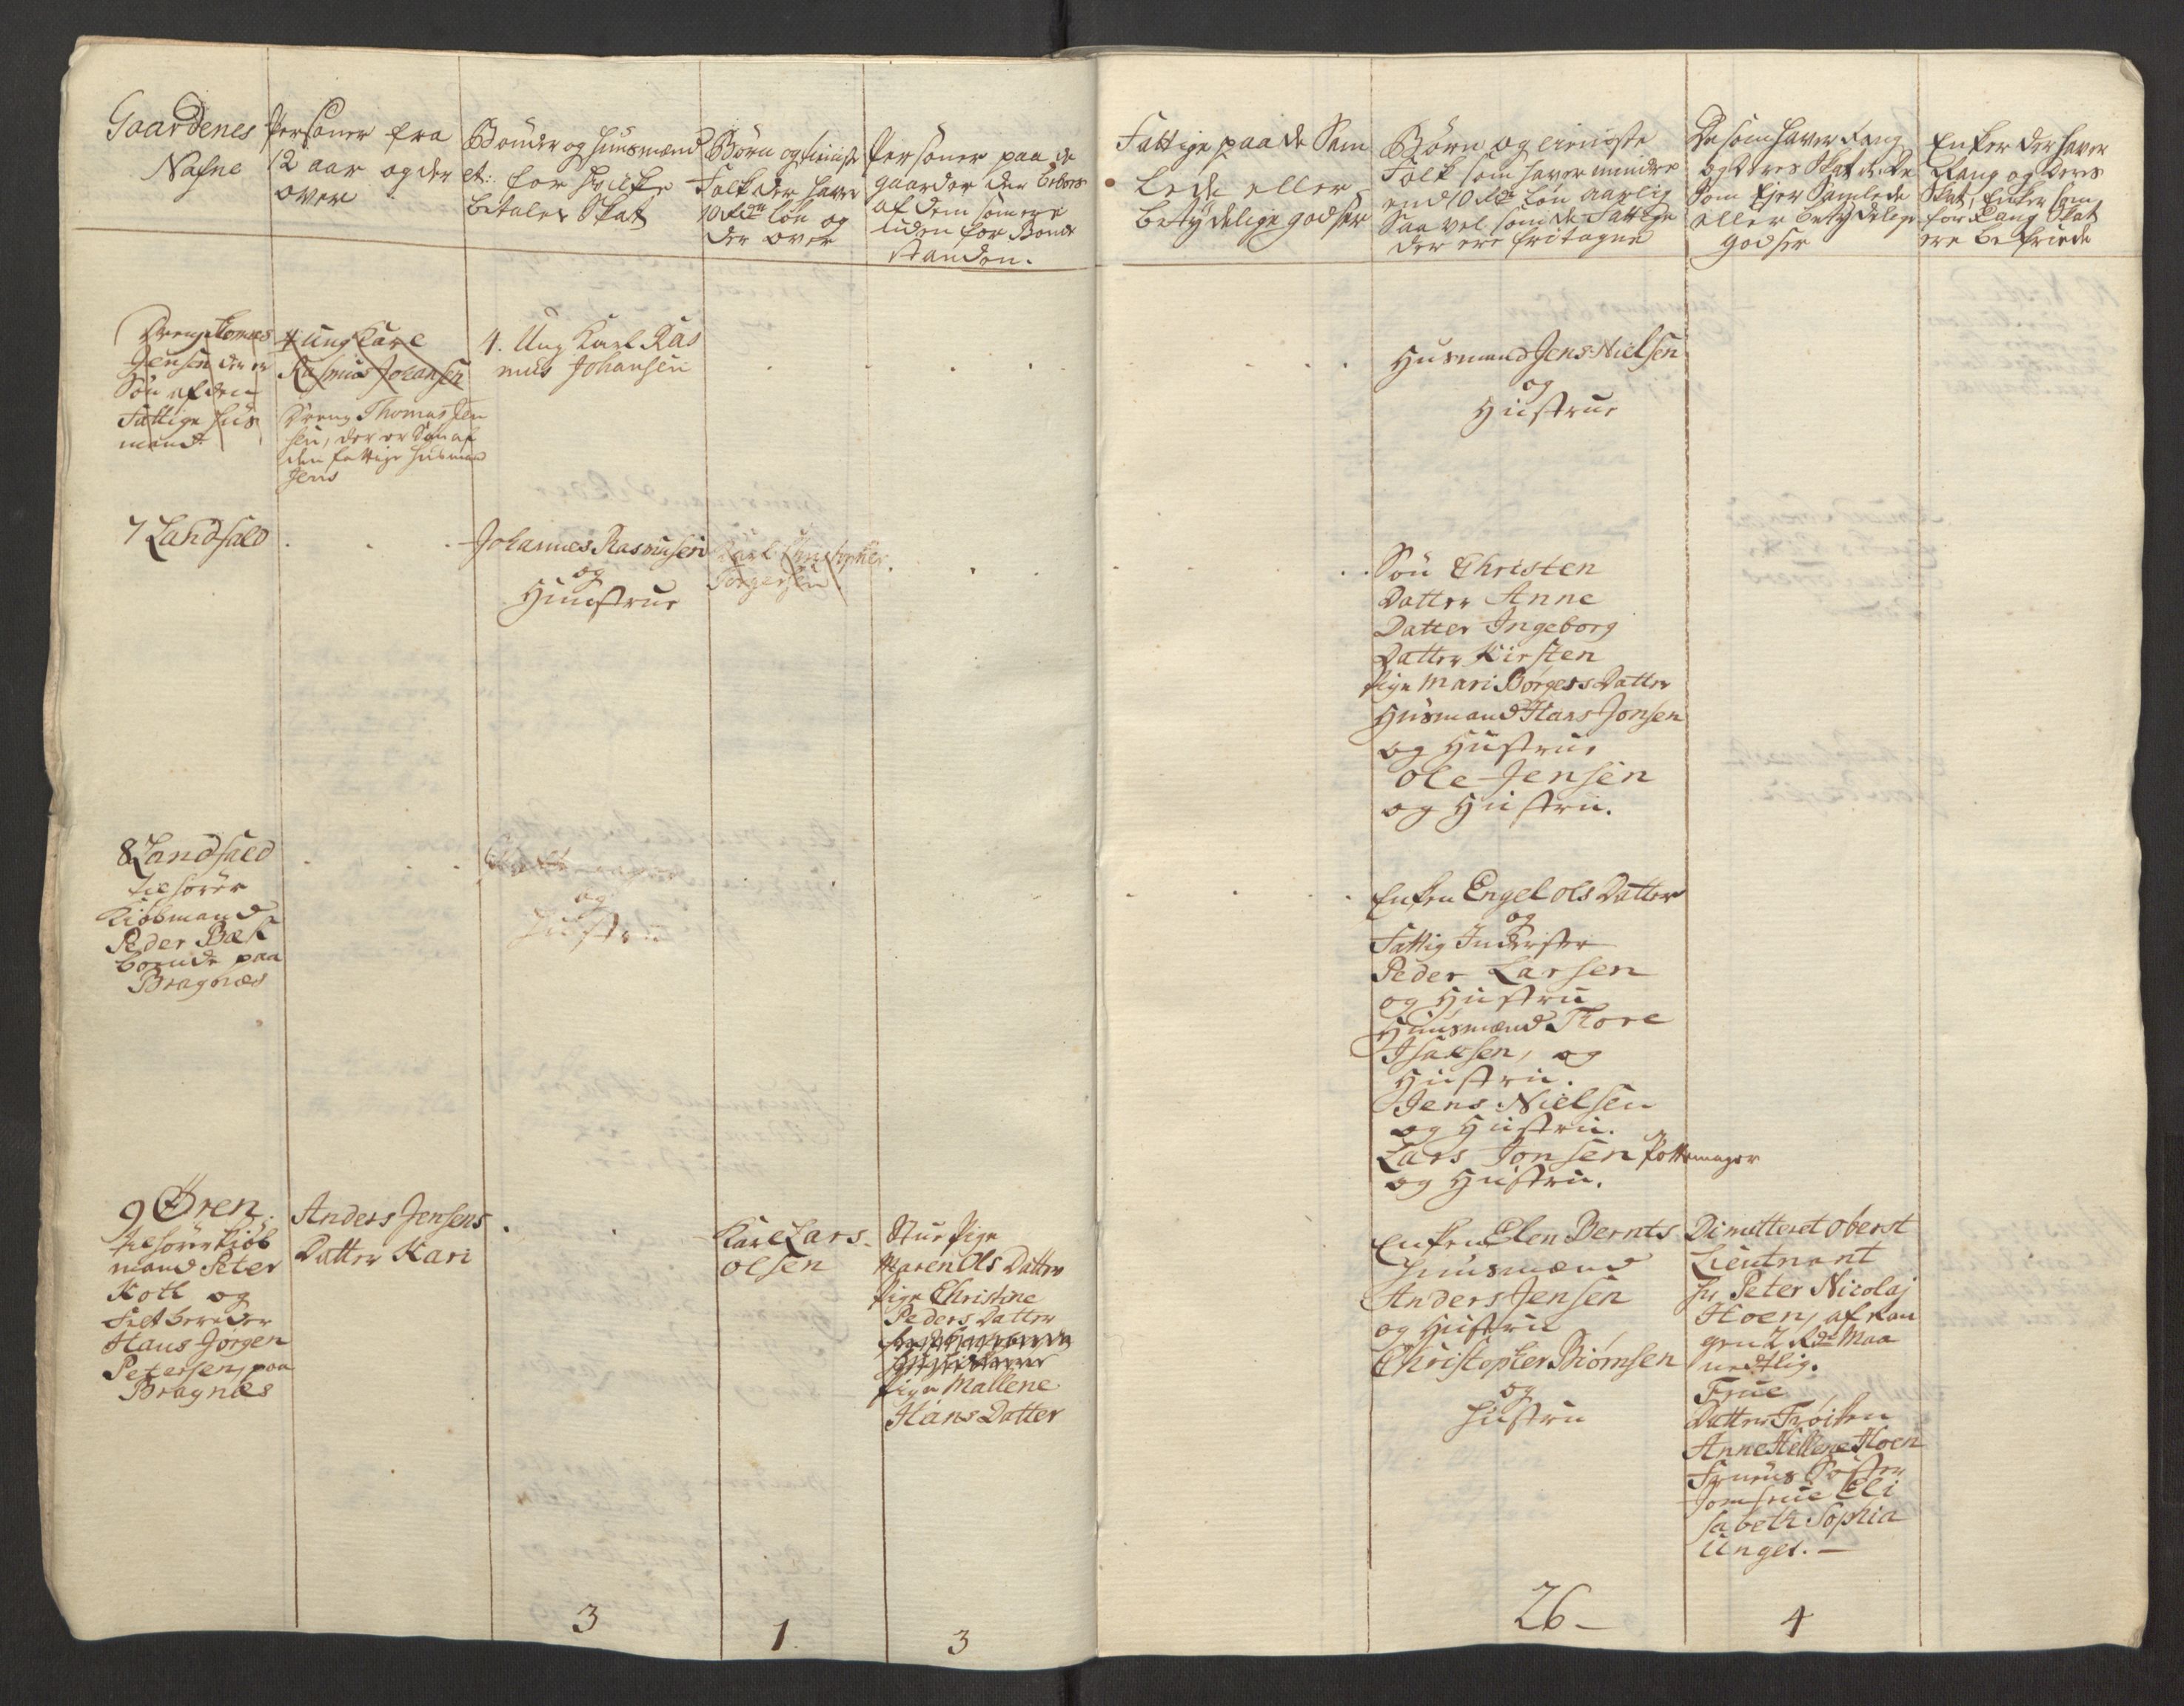 Gaardenes
Nafne
Personer fra
12 aar og der
over
Bønder og Huusmænd
et: for hvilke
betales Skat
Børn og
Folk der haver
10 Rdr løn og
der over
Personer paa de
gaarder der beboes
af dem som ere
uden for Bonde
standen.
Fattige paa de Sam
lede eller
betydelige godser
Børn og
Folk som haver mindre
end 10 Rdr løn aarlig
Saa vel som de Fattige
der ere fritagne
De som haver Rang
og deres Skat
Som Ejer Samlede
eller betydelige
godser
Enker der haver
Rang og deres
Skat, Enker som
for Rang Skat
ere befriede
Dreng Thomes
Jensen der er
Søn af den
Fattige Hus
mand
4 ung Karl
Rasmus Johansen
Dreng Thomas Jen
sen, der er Søn af
den fattige Husmand
Jens
4. Ung Karl Ras
mus Johansen
Husmand Jens Nielsen
og
Hustrue
7 Landfald
Johannes Rasmusen
og
Huustrue
Karl Christopher
Torgersen
Søn Christen
Datter Anne
Datter Ingeborg
Datter Kirsten
Pige Mari Børges Datter
Husmand Hans Jonsen
og Hustrue
Ole Jensen
og Hustru.
8 Landfald
tilhører
Kiøbmand
Peder Bæk
boende paa
Bragnæs
og
Hustru
Enken Engel Ols Datter
og
Fattig Inderster
Peder Larsen
og Hustru
Huusmænd Thore
Isaksen, og
Hustru.
Jens Nielsen
og Hustru.
Lars Jonsen Pottemager
og Hustru.
9 Øren.
tilhører Kiøb
mand Peter
Koll og
Feltbereder
Hans Jørgen
Petersen, paa
Bragnæs
Anders Jensens
Datter Kari
Karl Lars
Olsen
Stue Pige
Maren Ols Datter
Pige Christine
Peders Datter
Pige Mallene
Hans Datter
Enken Elen Bernts
Huusmænd
Anders Jensen
og Hustru
Christopher Biørnsen
og
Hustru
Dimitteret Oberst
Lieutnant
Hr Peter Nicolaj
Hoen, af Ran
gen 2 Rdr Maa
nedtlig.
Frue
Datter Frøiken
Anne Hellene Hoen
Fruens Søster
Jomfrue Eli
sabeth Sophia
Unger. —
3
1
3
26 —
4